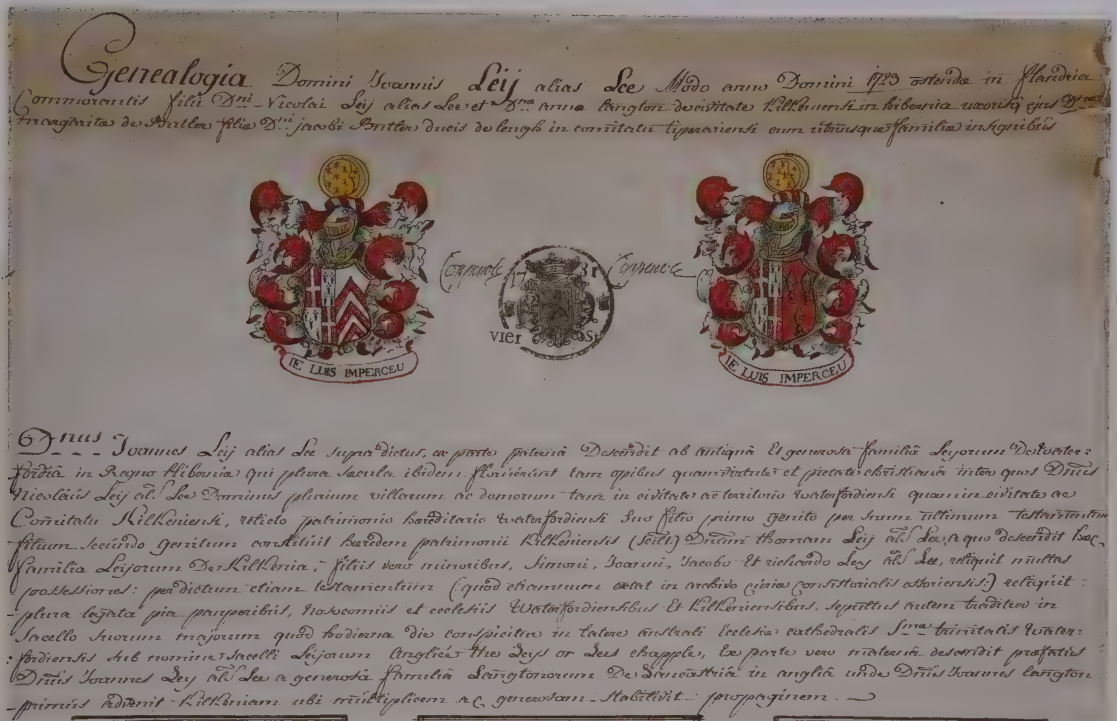 Genealogia Domini Joannis Leij alias Lee Modo anno Domini 1723 ostendæ in flandria
Commorantis filii Dni Nicolai Leij alias Lee et Dnæ anna langton de civitate Kilkeniensi in hibernia uxorisq ejus Dnæ
Margarita de Butler filia Dni jacobi Butler ducis de lengh in comitatu tiperariensi cum utriusque familiæ insignibus
IE LUIS IMPERCEU
VIER ST
IE LUIS IMPERCEU
Dnus Joannes Leij alias Lee supra dictus, ex parte paterna Descendit ab antiqua Et generosa familia Leyorum De Water:
fordia in Regno Hibernia qui plura sæcula ibidem floruerunt tam opibus quam virtute et pietate christiana inter quos Dnus
Nicolaus Leij als Lee Dominus plurium villarum ac domorum tam in civitate ac territorio waterfordiensi quam in civitate ac
Comitatu Kilkeniensi, relicto patrimonio hæreditario waterfordiensi suo filio primo genito per suum ultimum testamentum
filium secundo genitum constituit hæredem patrimonii Kilkeniensis (scilt) Dnum thomam Leij als Lee, a quo descendit hæc
familia Leijorum De Kilkenia, filiis vero minoribus, Simoni, Joanni, Jacobo Et richardo Ley als Lee, reliquit multas
possessiones: per dictum etiam testamentum (quod etiamnum extat in archivo curiæ consistorialis ossoriensis:) reliquit
plura legata pia pauperibus, noscomiis et ecclesiis Waterfordiensibus Et Kilkeniensibus, sepultus autem traditur in
Sacello suorum majorum quod hodierna die conspicitur in latere australi Ecclesiæ cathedralis Smæ trinitatis Water:
fordiensis sub nomine sacelli Leijorum Anglice the Leys or Lees chapple, Ex parte vero materna descendit præfatus
Dnus Joannes Ley als Lee a generosa familia Langtonorum De Lancastria in anglia unde Dnus Joannes langton
primus advenit Kilkeniam ubi multiplicem ac generosam stabilivit propaginem.